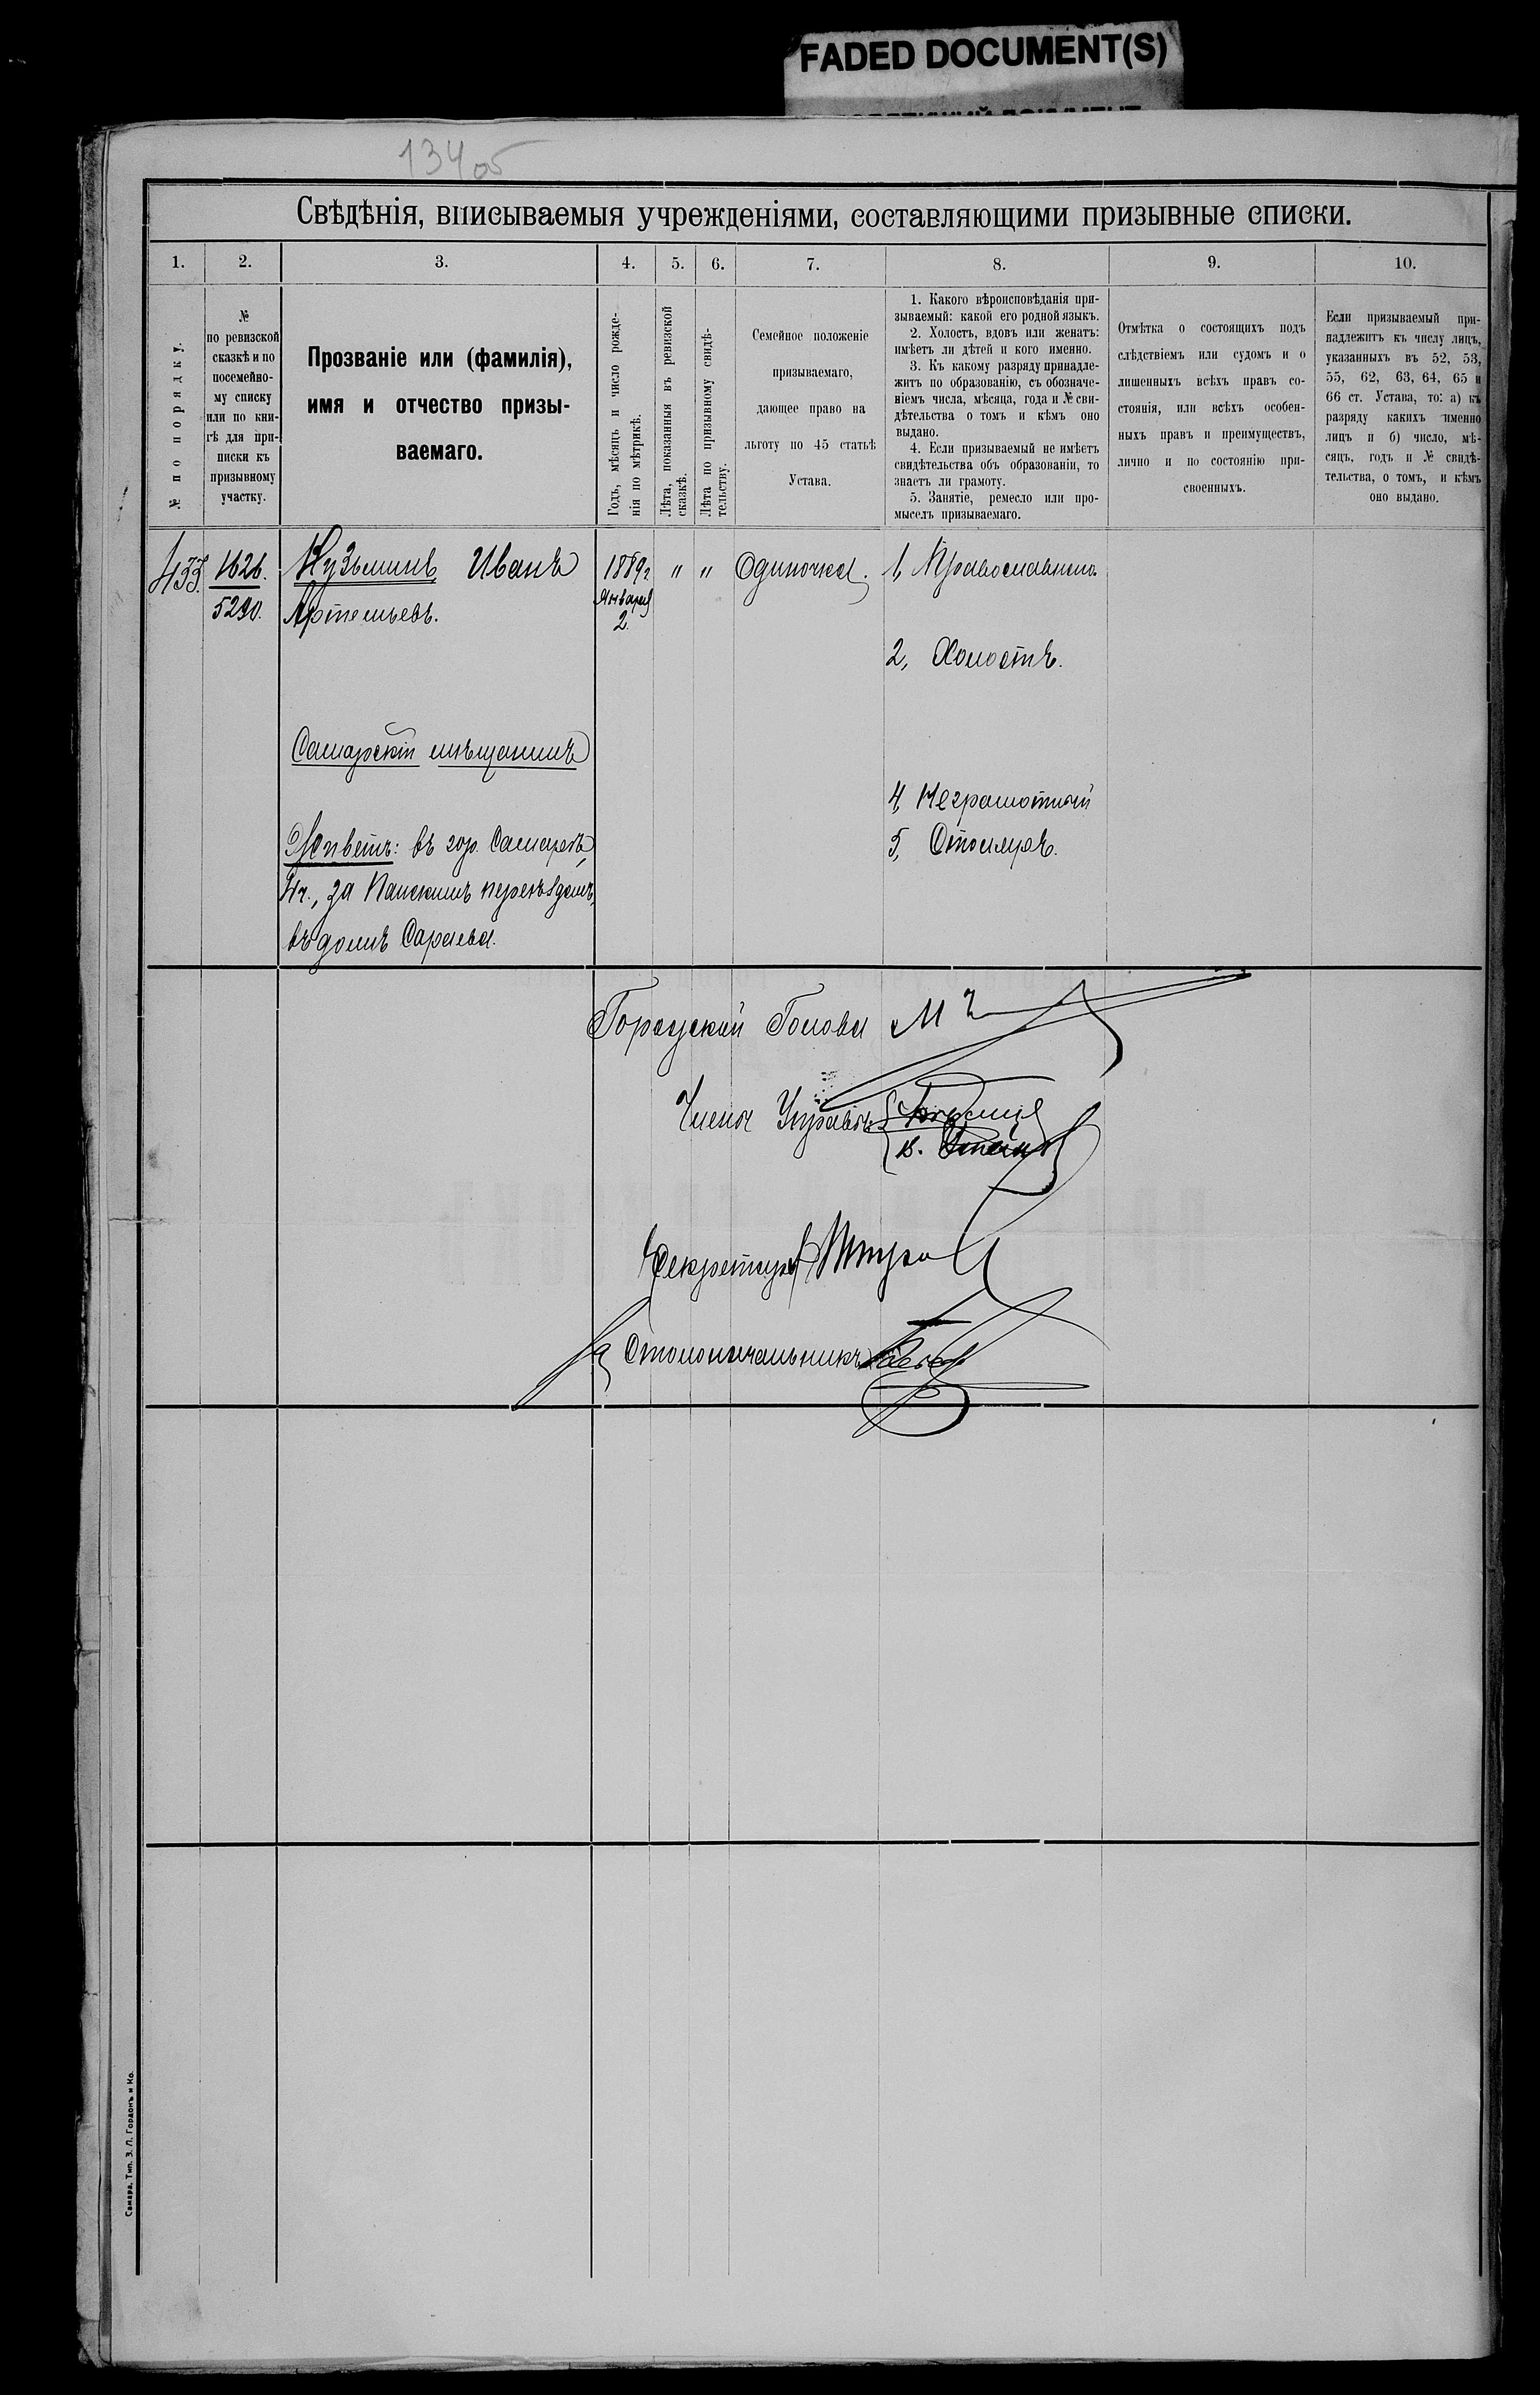 FADED DOCUMENT(S)
134 об
Свѣдѣнія, вписываемыя учрежденіями, составляющими призывные списки.
1. 2. 3. 4. 5. 6. 7. 8. 9. 10.
№ по порядку.
№
по ревизской
сказкѣ и по
посемейно-
му списку
или по кни-
гѣ для при-
писки къ
призывному
участку.
Прозваніе или (фамилія),
имя и отчество призы-
ваемаго.
Годъ, мѣсяцъ и число рожде-
нія по мѣтрикѣ.
Лѣта, показанныя въ ревизской
сказкѣ.
Лѣта по призывному свидѣ-
тельству.
Семейное положеніе
призываемаго,
дающее право на
льготу по 45 статьѣ
Устава.
1. Какого вѣроисповѣданія при-
зываемый: какой его родной языкъ.
2. Холостъ, вдовъ или женатъ:
имѣетъ ли дѣтей и кого именно.
3. Къ какому разряду принадле-
житъ по образованію, съ обозначе-
ніемъ числа, мѣсяца, года и № сви-
дѣтельства о томъ и кѣмъ оно
выдано.
4. Если призываемый не имѣетъ
свидѣтельства объ образованіи, то
знаетъ ли грамоту.
5. Занятіе, ремесло или про-
мыселъ призываемаго.
Отмѣтка о состоящихъ подъ
слѣдствіемъ или судомъ и о
лишенныхъ всѣхъ правъ со-
стоянія, или всѣхъ особен-
ныхъ правъ и преимуществъ,
лично и по состоянію при-
своенныхъ.
Если призываемый при-
надлежитъ къ числу лицъ,
указанныхъ въ 52, 53,
55, 62, 63, 64, 65 и
66 ст. Устава, то: а) къ
разряду какихъ именно
лицъ и б) число, мѣ-
сяцъ, годъ и № свидѣ-
тельства, о томъ, и кѣмъ
оно выдано.
433.
1626.
5290.
Кузьминъ Иванъ
Артемьевъ.
Самарскій мѣщанинъ
Живетъ: въ гор. Самарѣ,
4 ч., за Панскимъ переѣздомъ,
въ домѣ Сараева.
1889 г
Января
2.
" "
Одиночка.
1, Православнаго
2, Холостъ.
4, Неграмотный
5, Столяръ.
Городской Голова
Члены Управы
Секретарь
За Столоначальника
Самара. Тип. З. Л. Гордонъ и Ко.